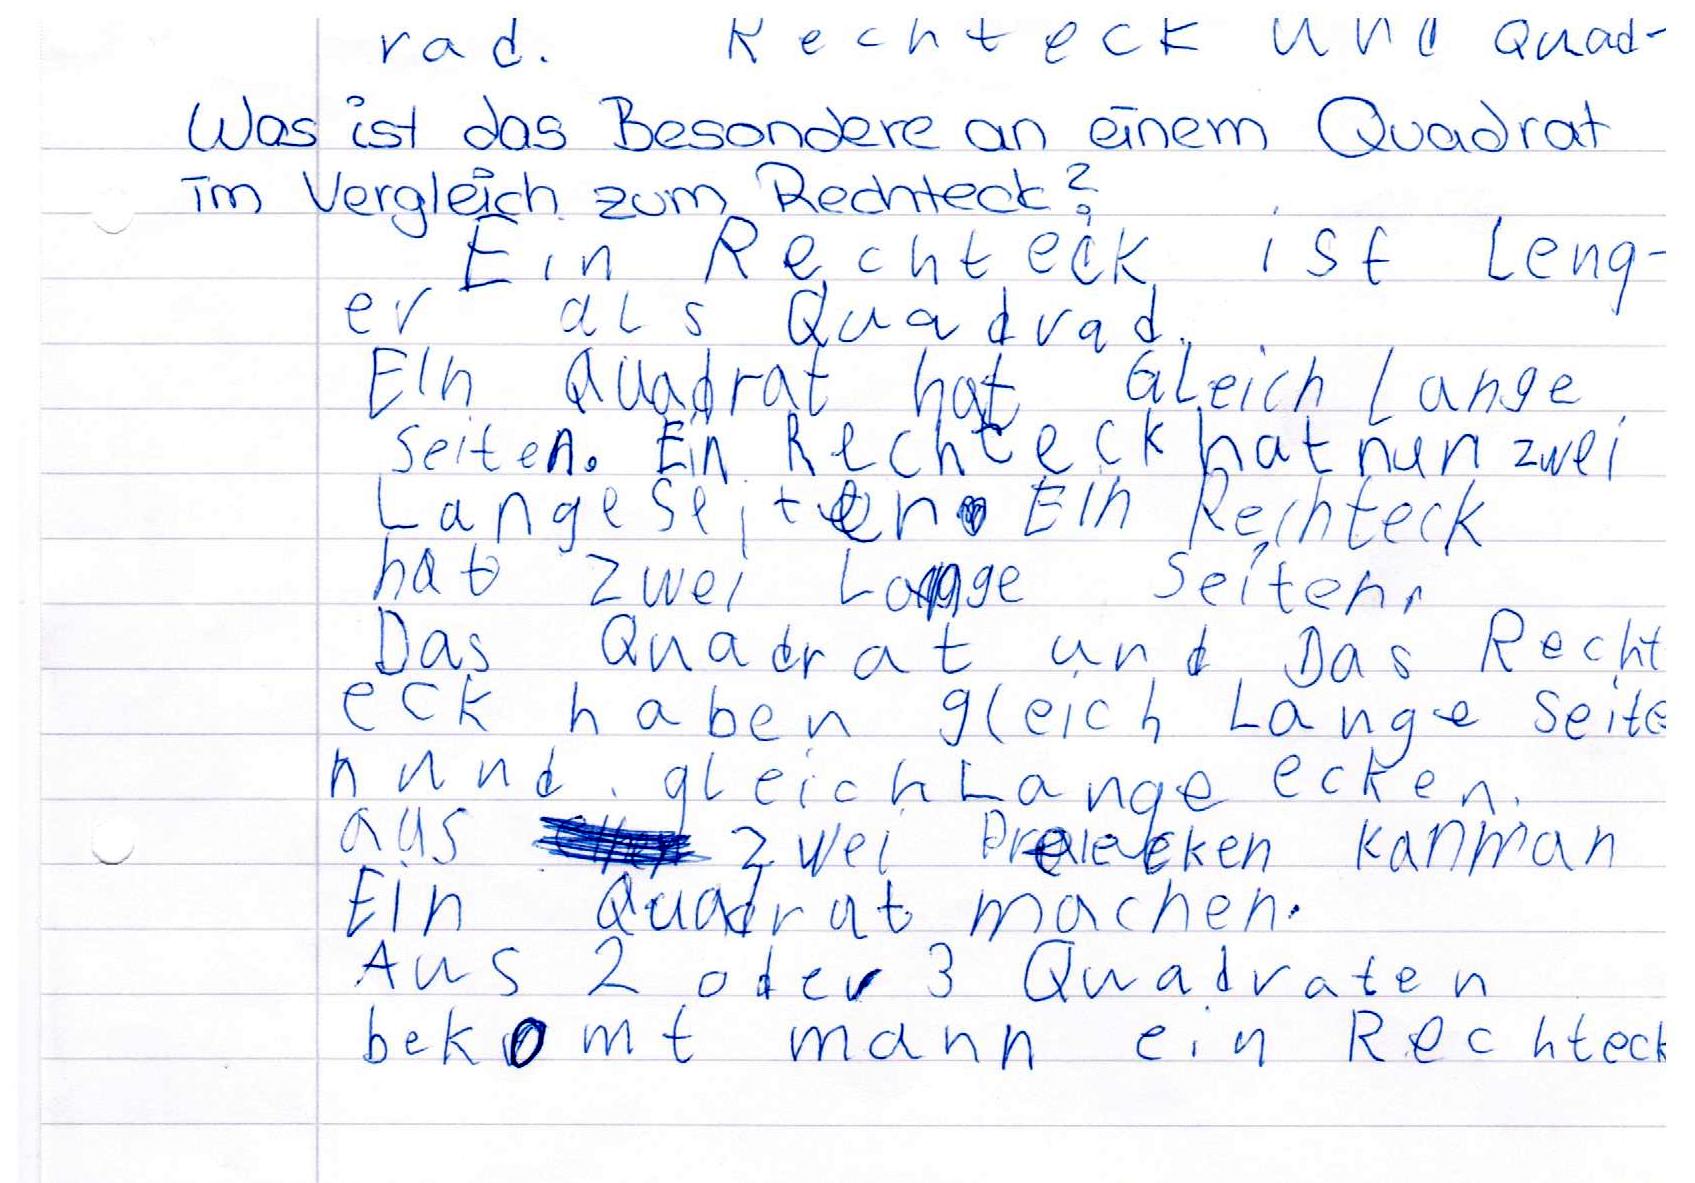 rad. Rechteck und Quad-
Was ist das Besondere an einem Quadrat
im Vergleich zum Rechteck?
Ein Rechteck ist Leng-
er als Quadrad.
EIn Quadrat hat Gleich lange
seiten. Ein Rechteck hat nur zwei
Lange Seiten. EIn Rechteck
hat zwei Lange Seiten.
Das Quadrat und Das Recht
eck haben gleich Lange Seite
n und gleich Lange ecken.
aus zwei Dreiecken kan man
EIn Quadrat machen.
Aus 2 oder 3 Quadraten
bekomt mann ein Rechteck